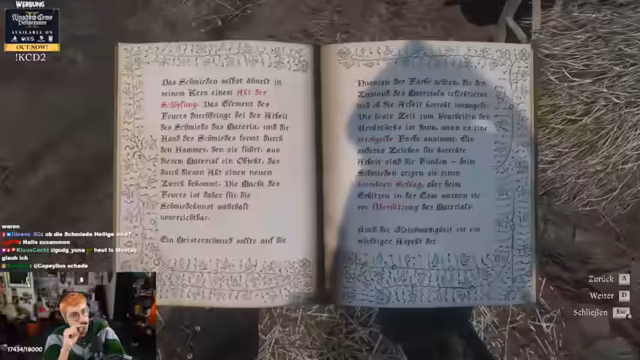 WERBUNG
Kingdom Come
Deliverance
II
AVAILABLE ON
OUT NOW!
!KCD2
Das Schmieden selbst ähnelt in
seinem Kern einem Akt der
Schöpfung. Das Element des
Feuers durchdringt bei der Arbeit
des Schmieds das Material und die
Hand des Schmiedes formt durch
den Hammer, den sie führt, aus
diesem Material ein Objekt, das
durch diesen Akt einen neuen
Zweck bekommt. Die Macht des
Feuers ist daher für die
Schmiedekunst wahrhaft
unverzichtbar.
Ein Meisterschmied sollte auf die
Nuancen der Farbe achten, die den
Zustand des Materials reflektieren
und ob die Arbeit korrekt vorangeht.
Die beste Zeit zum Bearbeiten des
Werkstücks ist dann, wenn es eine
Farbe annimmt. Ein
anderes Zeichen für korrekte
Arbeit sind die Funken – beim
Schmieden zeigen sie einen
korrekten Schlag, aber beim
Erhitzen in der Esse warnen sie
vor Überhitzung des Materials.
Auch die Gleichmäßigkeit ist ein
wichtiger Aspekt der
Zurück A
Weiter D
Schließen Esc
waren
ob die Schmiede Heilige sind?
Hallo zusammen
@gudg_yuna heut is Montag
glaub ich
@Copeylius schade
17434/18000